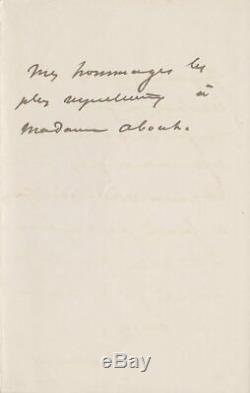 Mes hommages les
plus respectueux à
Madame About.